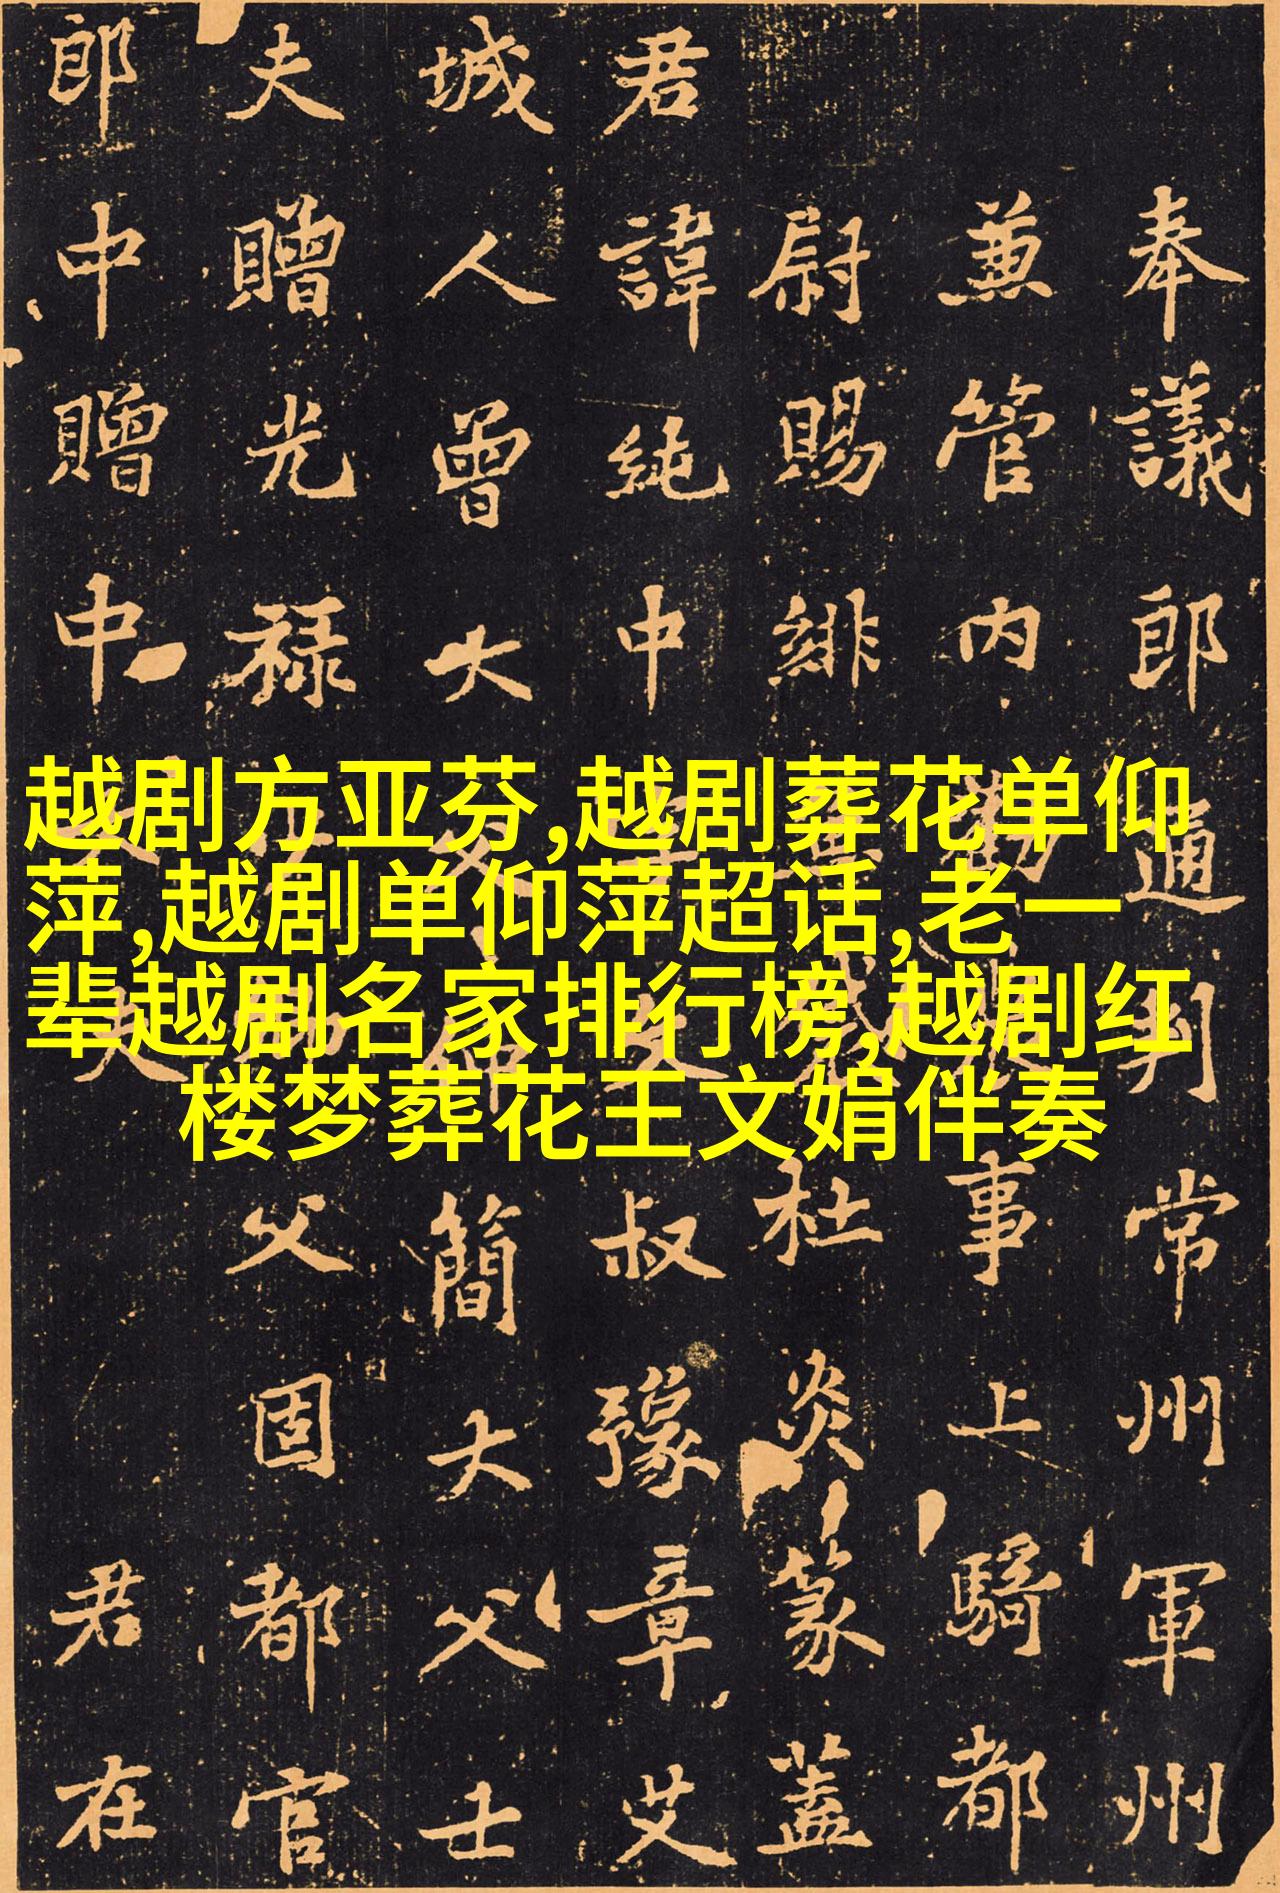 越剧方亚芬,越剧葬花单仰
萍,越剧单仰萍超话,老一
辈越剧名家排行榜,越剧红
楼梦葬花王文娟伴奏
奉議郎通判常州軍州
兼管内事上騎都
尉賜緋杜炎篆蓋
君諱純中文叔豫章艾
城人曾大父仲簡大父士
夫贈光禄父固都官
郎中贈中大夫君在